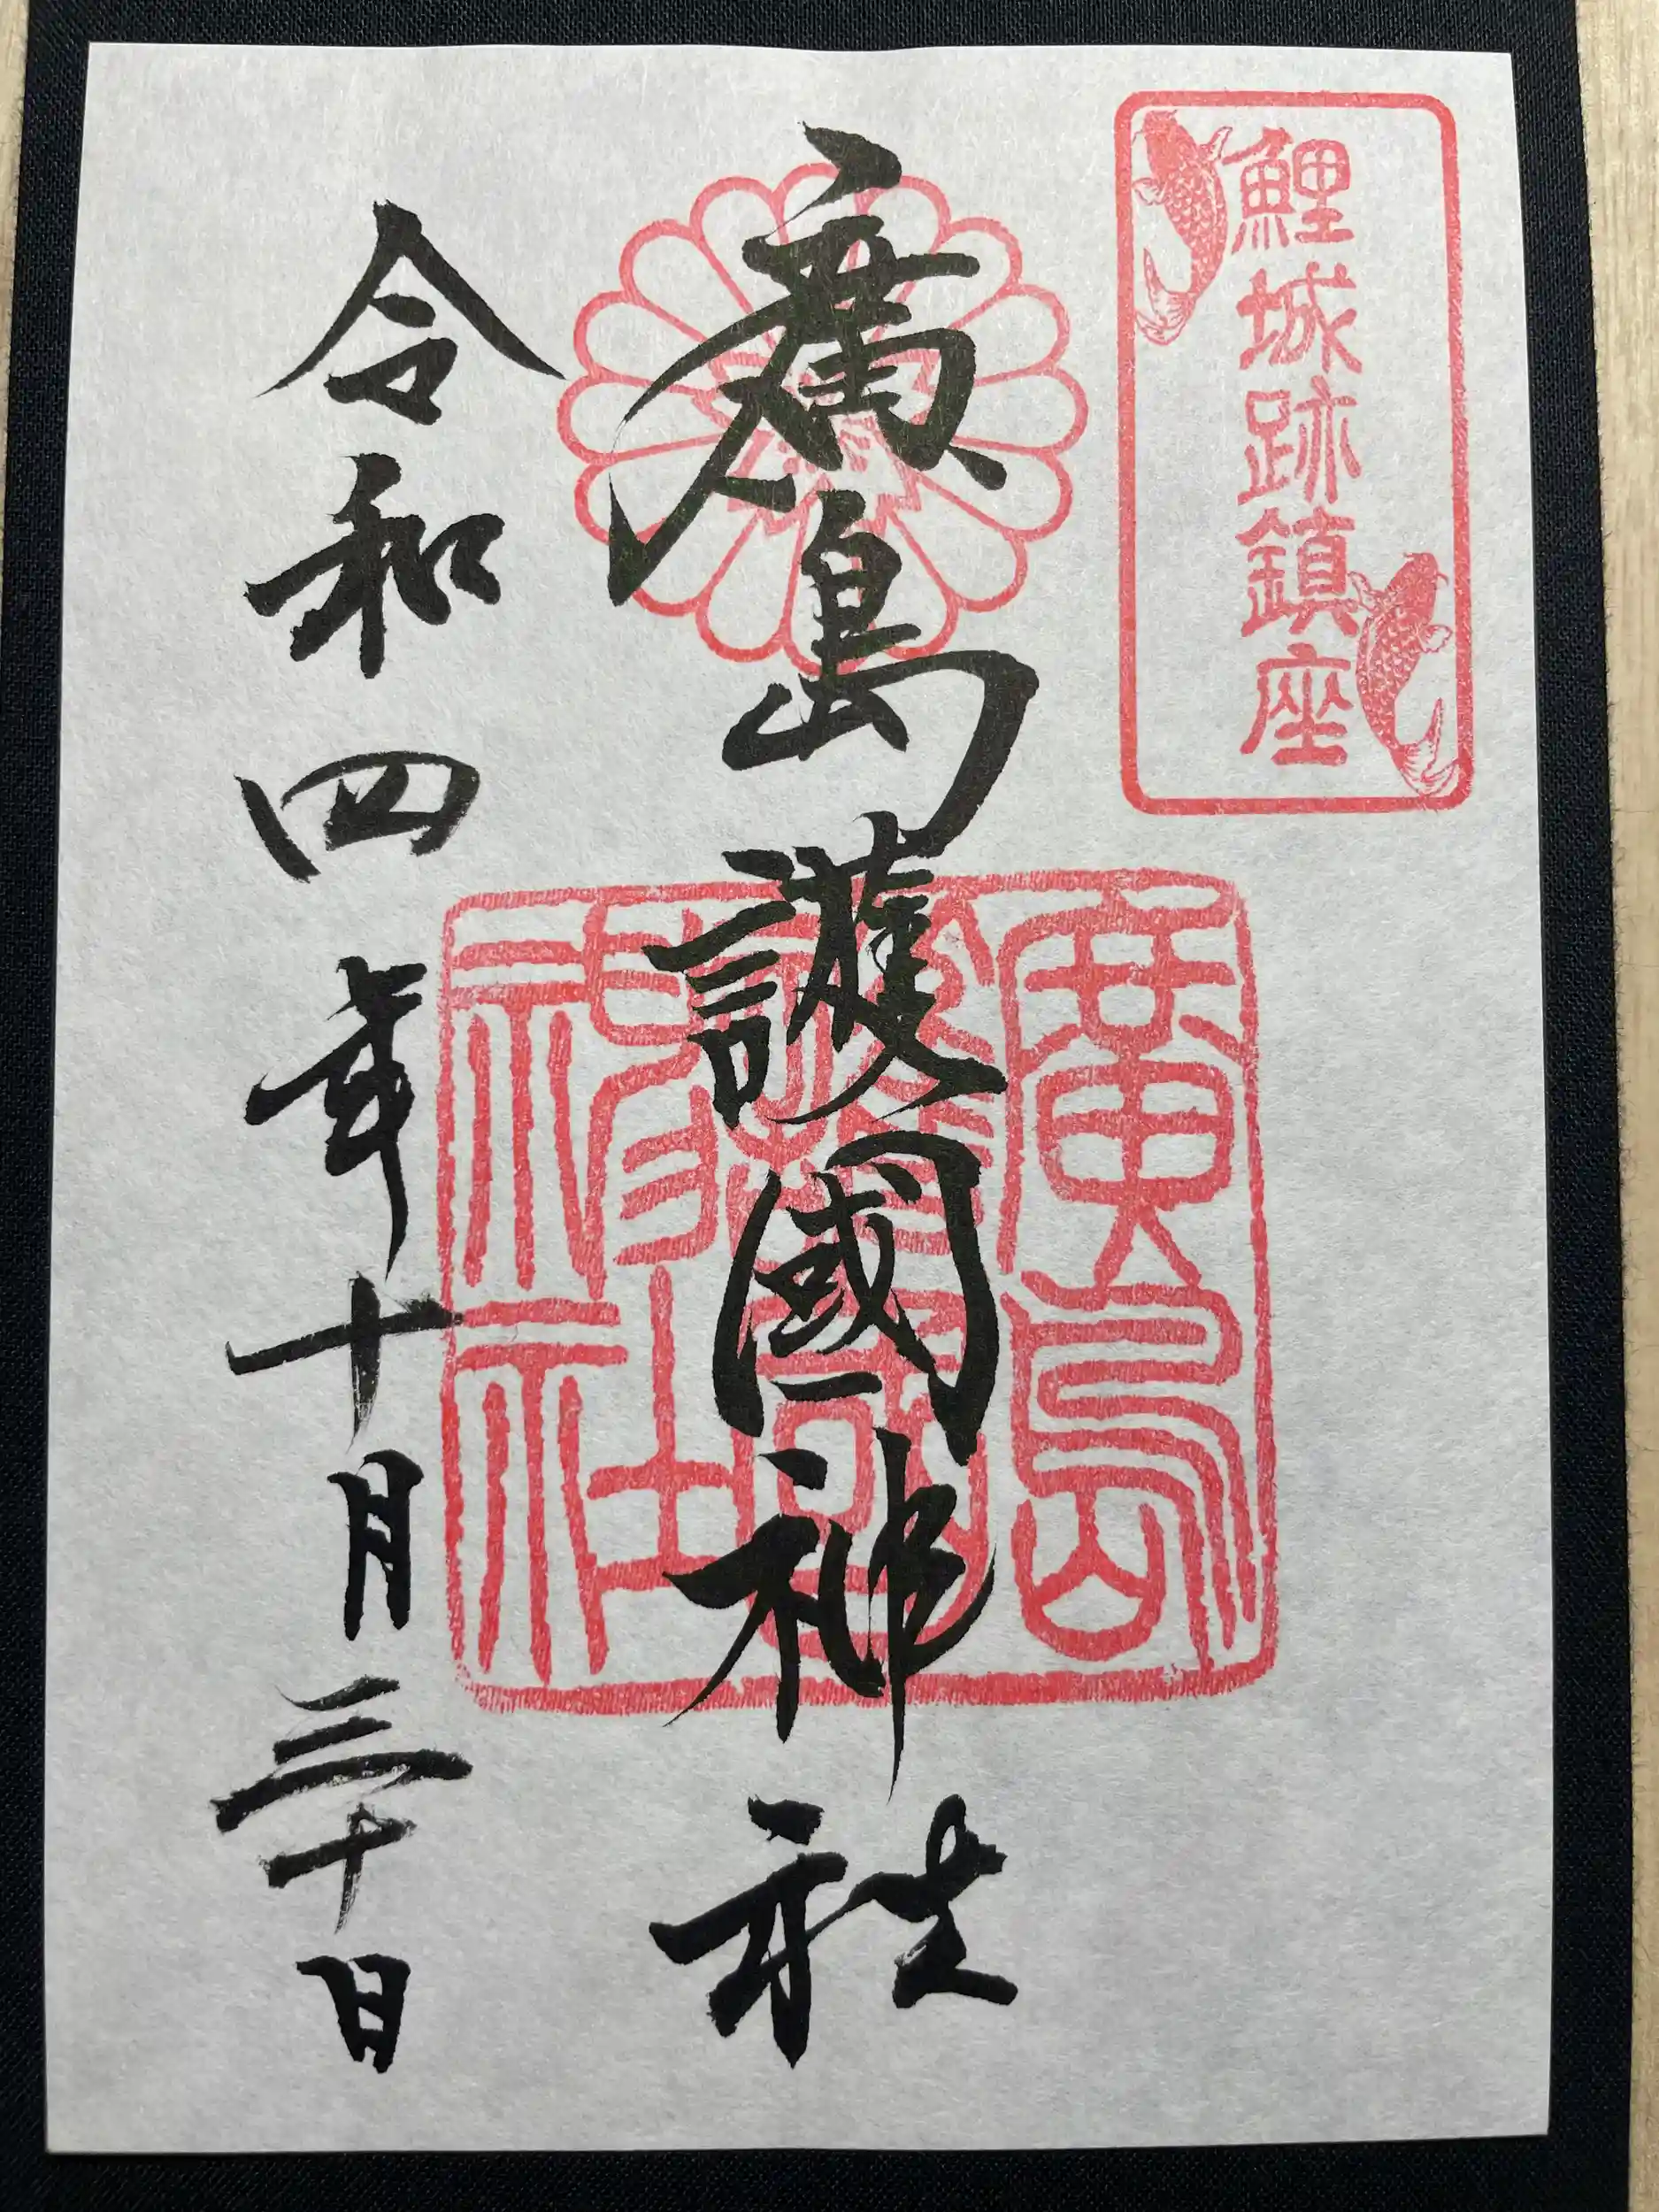 鯉城跡鎮座
廣島護國神社
廣島護國神社
令和四年十月三十日